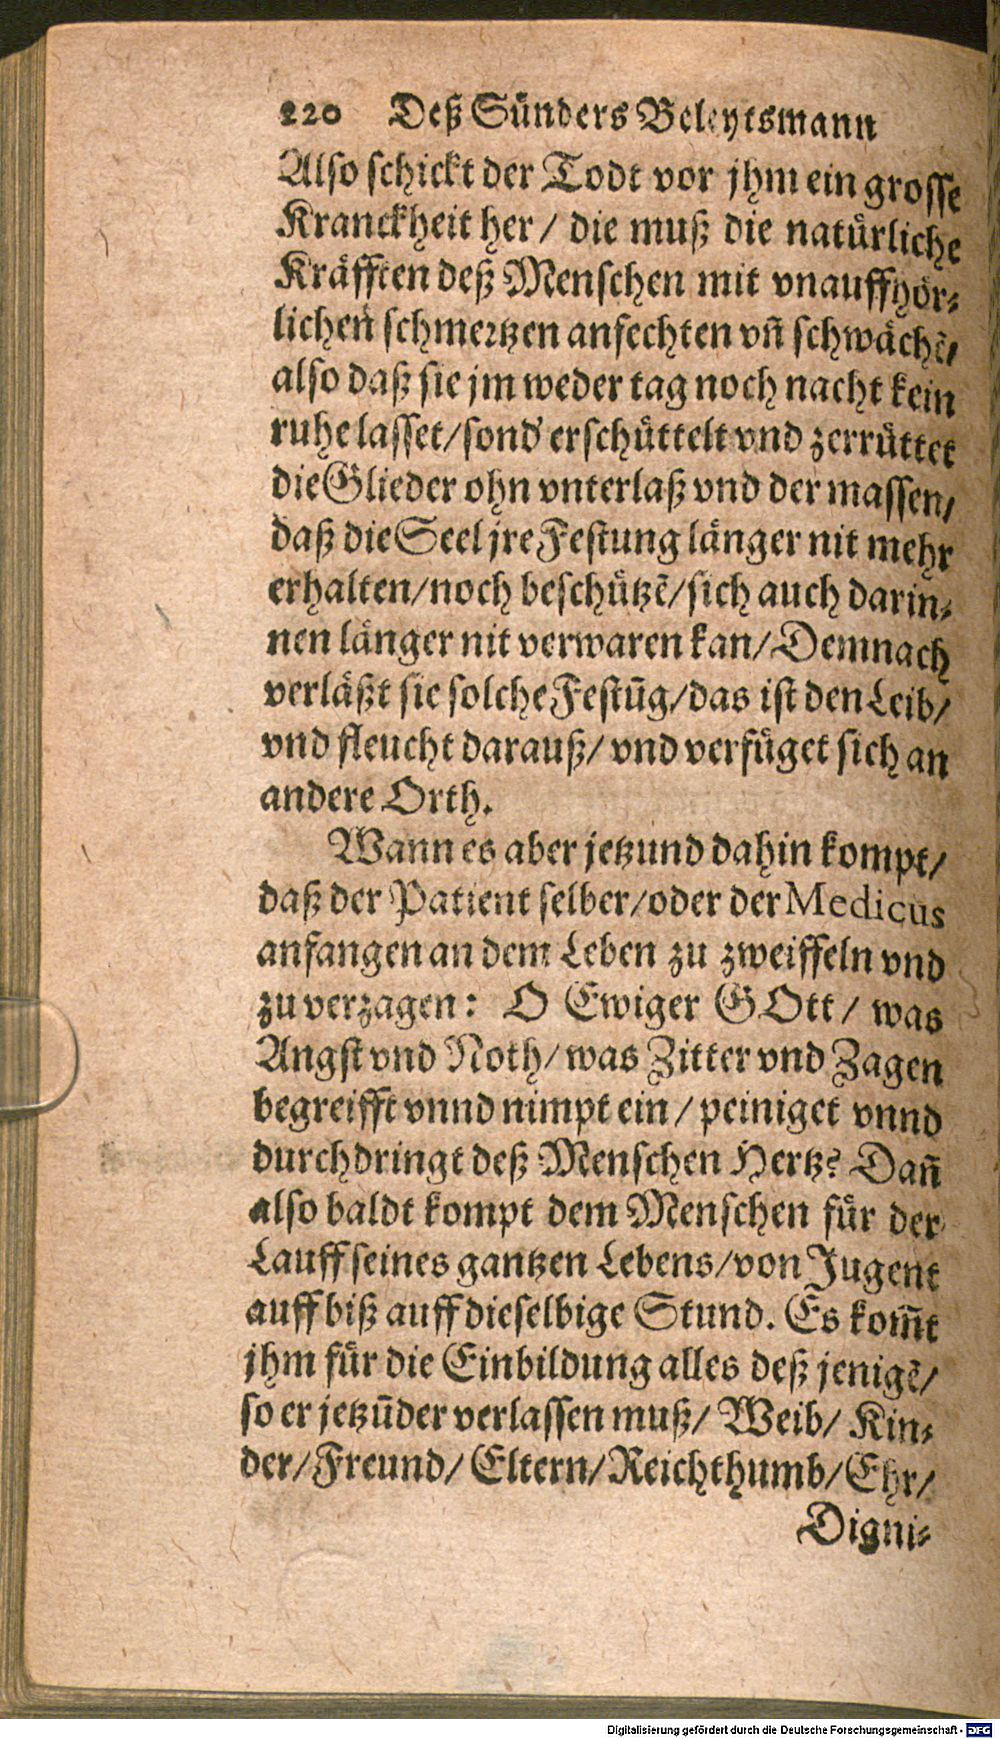 220 Deß Sünders Beleytsmann
Also schickt der Todt vor jhm ein grosse
Kranckheit her / die muß die natürliche
Kräfften deß Menschen mit vnauffhör⸗
lichen schmertzen anfechten vñ schwächẽ/
also daß sie jm weder tag noch nacht kein
ruhe lasset/sond' erschüttelt vnd zerrüttet
die Glieder ohn vnterlaß vnd der massen/
daß die Seel jre Festung länger nit mehr
erhalten/noch beschützẽ/sich auch darin⸗
nen länger nit verwaren kan/Demnach
verläßt sie solche Festũg/das ist den Leib/
vnd fleucht darauß/ vnd verfüget sich an
andere Orth.
Wann es aber jetzund dahin kompt/
daß der Patient selber/oder der Medicus
anfangen an dem Leben zu zweiffeln vnd
zu verzagen: O Ewiger GOtt/ was
Angst vnd Noth/ was Zitter vnd Zagen
begreifft vnnd nimpt ein / peiniget vnnd
durchdringt deß Menschen Hertz? Dañ
also baldt kompt dem Menschen für der
Lauff seines gantzen Lebens/von Jugent
auff biß auff dieselbige Stund. Es kom̃t
jhm für die Einbildung alles deß jenigẽ/
so er jetzũder verlassen muß/ Weib/ Kin⸗
der/Freund/ Eltern/Reichthumb/Ehr/
Digni⸗
Digitalisierung gefördert durch die Deutsche Forschungsgemeinschaft - DFG